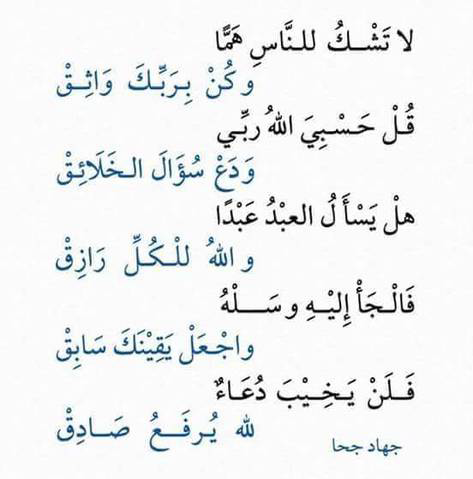 لا تَشْـكُ للـنَّاسِ هَمًّا
و كُنْ بِـرَبِّـكَ وَاثِـقْ
قُـلْ حَسْـبِيَ اللهُ ربِّـي
وَ دَعْ سُؤَالَ الـخَلَائِقْ
هلْ يَسْأَلُ العبْدُ عَبْدًا
و اللهُ للْـكُلِّ رَازِقْ
فَالْـجَأْ إِليْـهِ و سَـلْهُ
واجْـعَلْ يَقِيْنَكَ سَابِقْ
فَـلَنْ يَـخِيْـبَ دُعَـاءٌ
لله يُـرفَـعُ صَـادِقْ
جهاد جحا